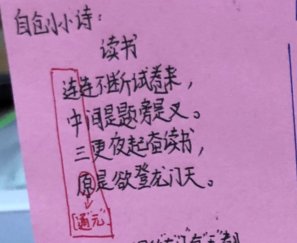 自创小小诗：
读书
连连不断试卷来，
中间是题旁是叉。
三更夜起奋读书，
原是欲登龙门天。
通元